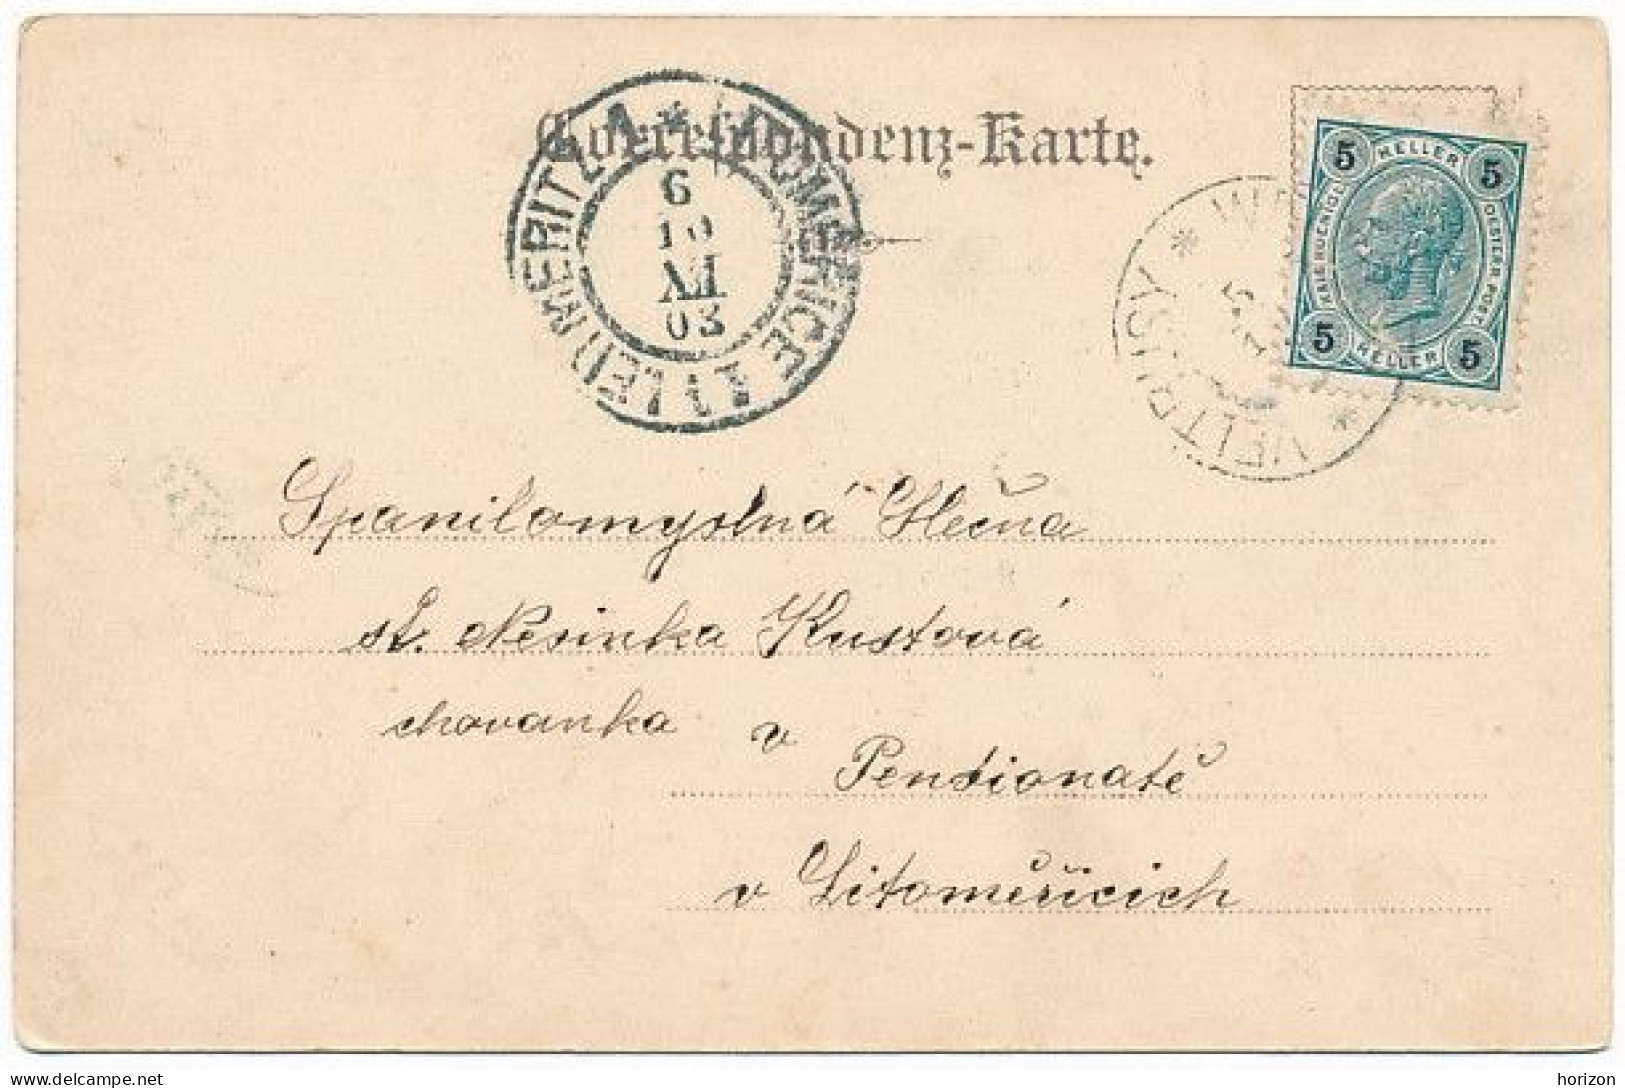 Correspondenz-Karte.
LEITMERITZ 1 * LITOMĚŘICE 1
6
10
XII
03
5 KELLER 5
KAIS.KÖNIGL. OESTERR.POST
5 HELLER 5
VELTRUSY
Spanilomyslná Slečna
sl. Resinka Kustová
chovanka v
Pensionatě
v Litoměřicích
horizon